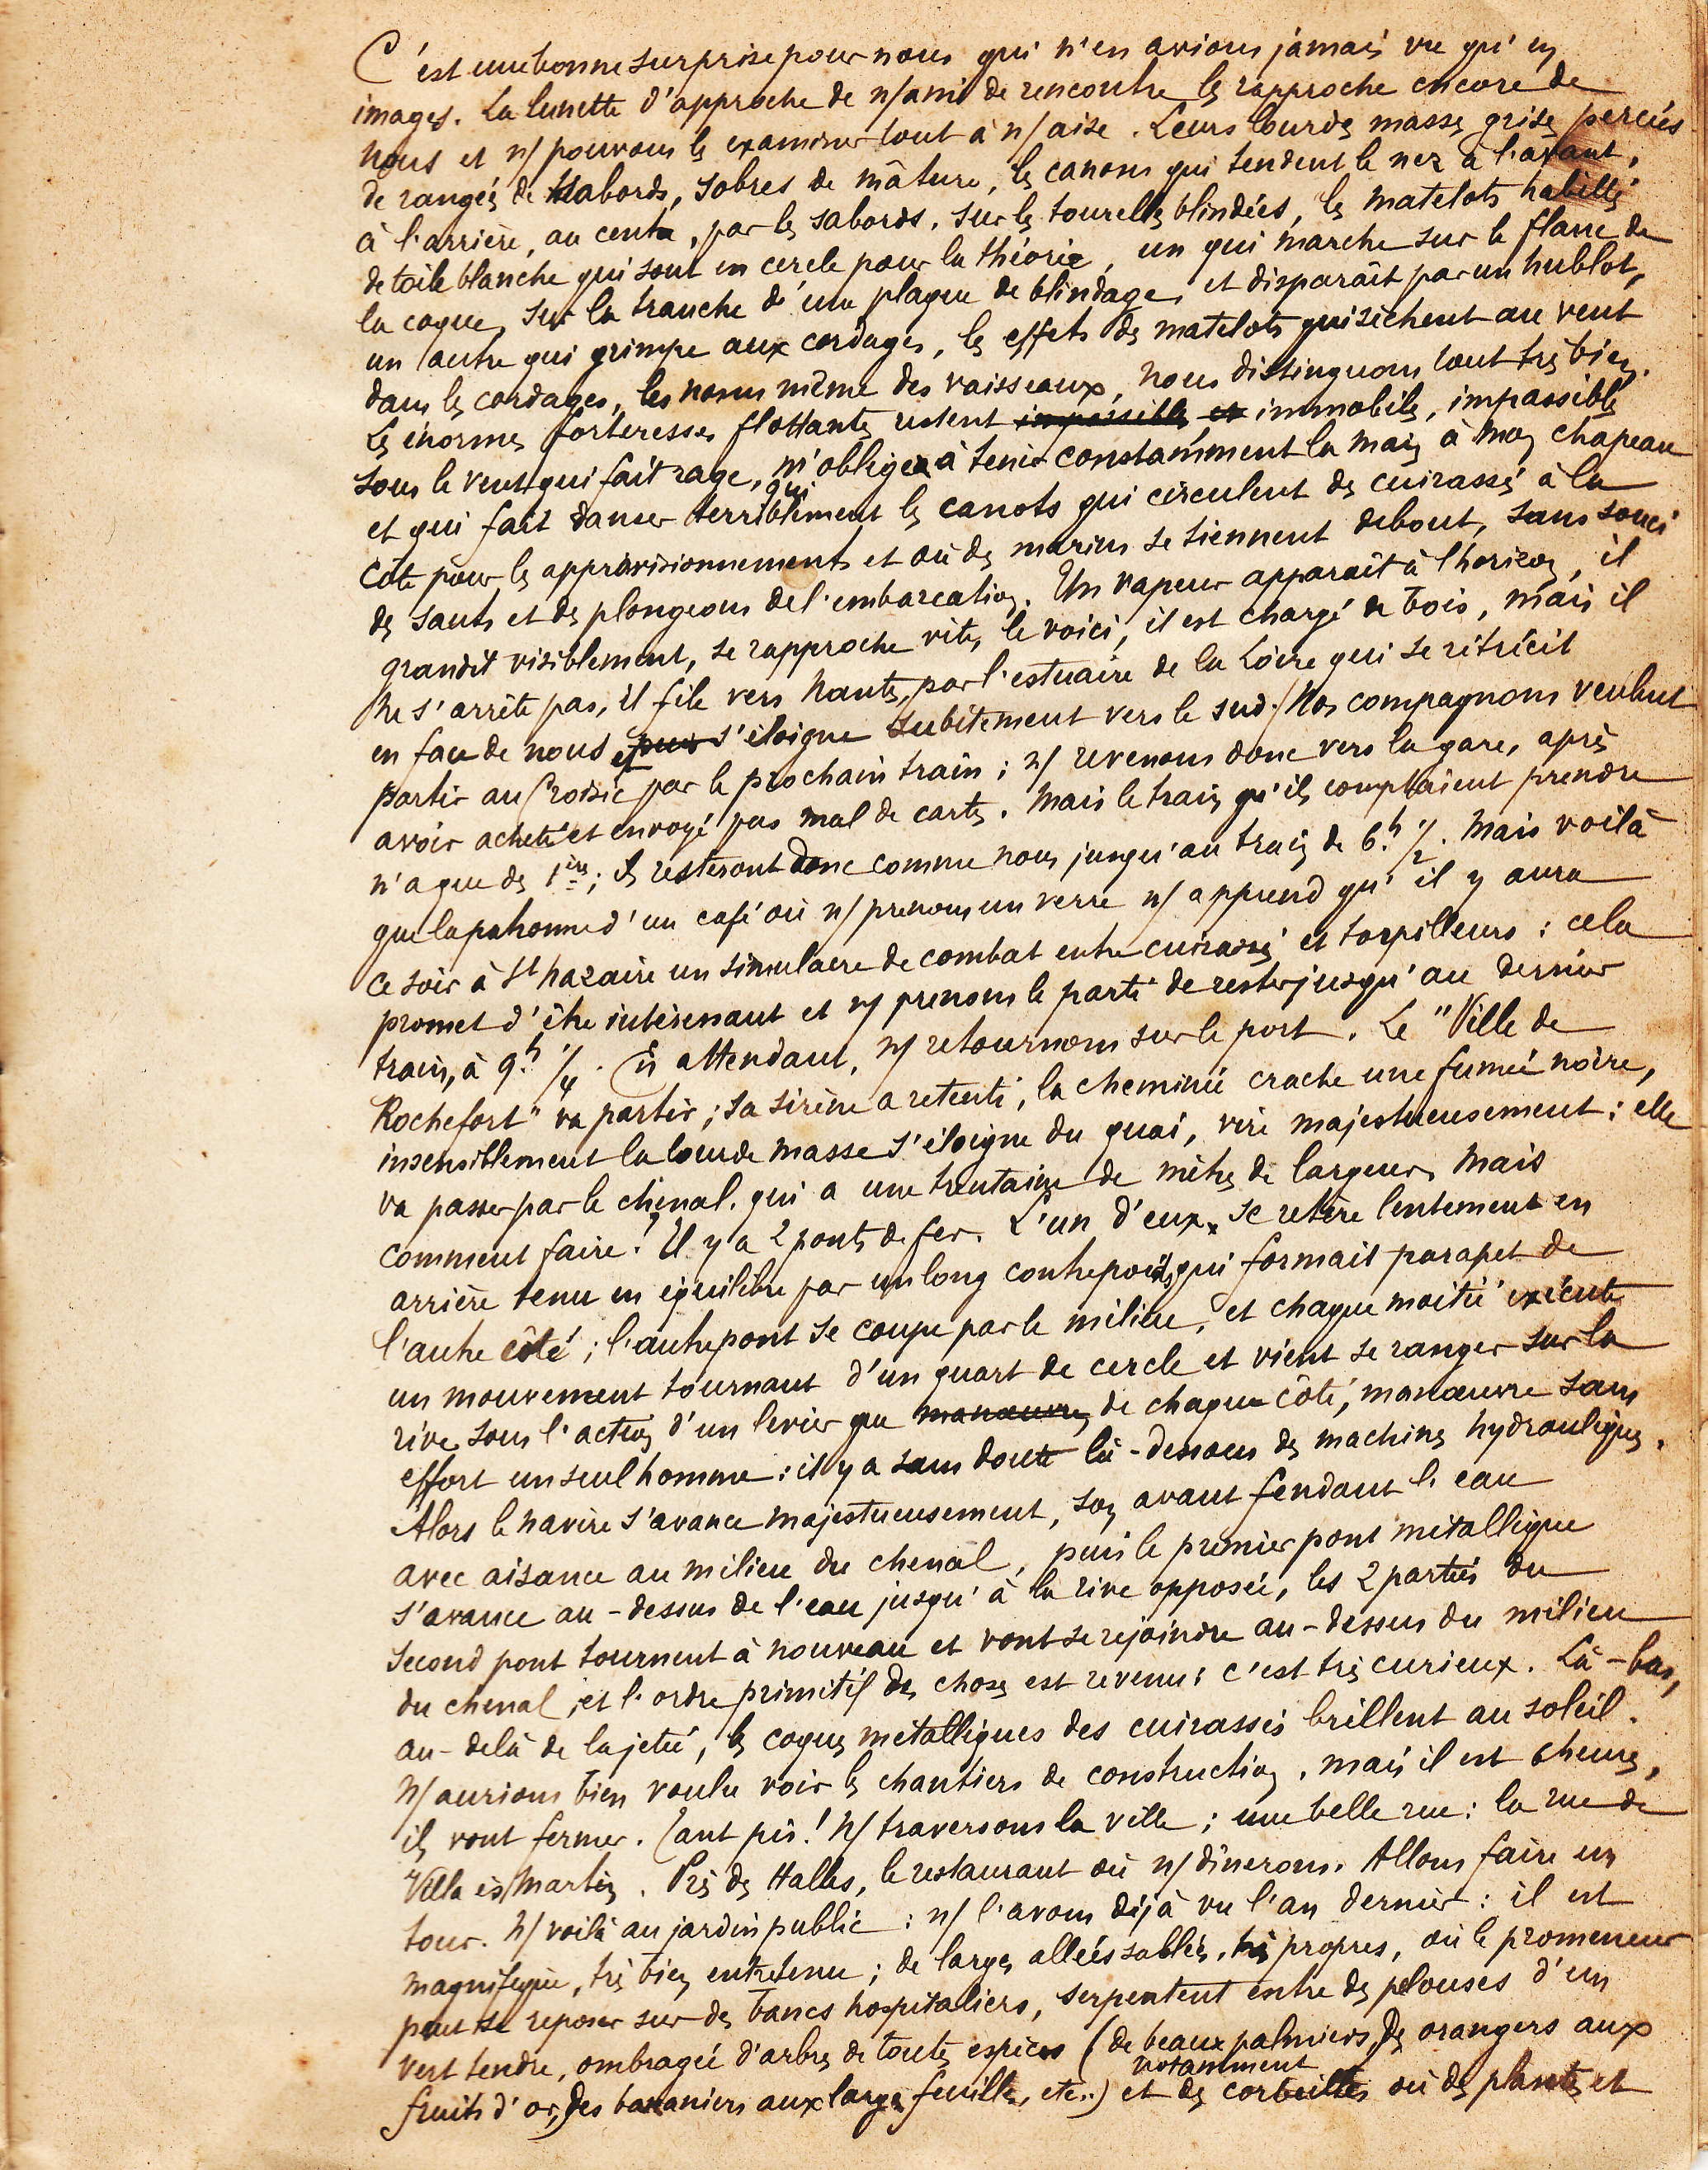 C'est une bonne surprise pour nous qui n'en avions jamais vu qu'en
images. La lunette d'approche de n/ami de rencontre les rapproche encore de
nous et n/ pouvons les examiner tout à n/aise. Leurs lourdes masses grises percées
de rangées de sabords, sobres de mâture, les canons qui tendent le nez à l'avant,
à l'arrière, au centre, par les sabords, sur les tourelles blindées, les matelots habillés
de toile blanche qui sont en cercle pour la théorie, un qui marche sur le flanc de
la coque, sur la tranche d'une plaque de blindage, et disparaît par un hublot,
un autre qui grimpe aux cordages, les effets des matelots qui sèchent au vent
dans les cordages, les noms même des vaisseaux, nous distinguons tout très bien.
Les énormes forteresses flottantes restent impassibles et immobiles, impassibles
sous le vent qui fait rage, m'oblige à tenir constamment la main à mon chapeau
et qui fait danser terriblement les canots qui circulent des cuirassés à la
côte pour les approvisionnements et où des marins se tiennent debout, sans souci
des sauts et des plongeons de l'embarcation. Un vapeur apparaît à l'horizon, il
grandit visiblement, se rapproche vite, le voici, il est chargé de bois, mais il
ne s'arrête pas, il file vers Nantes, par l'estuaire de la Loire qui se rétrécit
en face de nous et puis s'éloigne subitement vers le sud. / Nos compagnons veulent
partir au Croisic par le prochain train ; n/ revenons donc vers la gare, après
avoir acheté et envoyé pas mal de cartes. Mais le train qu'ils comptaient prendre
n'a que des 1ères ; ils resteront donc comme nous jusqu'au train de 6h 1/2. Mais voilà
que la patronne d'un café où n/ prenons un verre n/ apprend qu'il y aura
ce soir à St Nazaire un simulacre de combat entre cuirassés et torpilleurs : cela
promet d'être intéressant et n/ prenons le parti de rester jusqu'au dernier
train, à 9h 1/4. En attendant, n/ retournons sur le port. Le "Ville de
Rochefort" va partir ; sa sirène a retenti, la cheminée crache une fumée noire,
insensiblement la lourde masse s'éloigne du quai, vire majestueusement : elle
va passer par le chenal, qui a une trentaine de mètres de largeur, mais
comment faire ? Il y a 2 ponts de fer. L'un d'eux, se retire lentement en
arrière tenu en équilibre par un long contrepoids, qui formait parapet de
l'autre côté ; l'autre pont se coupe par le milieu, et chaque moitié exécute
un mouvement tournant d'un quart de cercle et vient se ranger sur la
rive sous l'action d'un levier que manœuvre, de chaque côté, manœuvre sans
effort un seul homme : il y a sans doute là-dessous des machines hydrauliques.
Alors le navire s'avance majestueusement, son avant fendant l'eau
avec aisance au milieu du chenal, puis le premier pont métallique
s'avance au-dessus de l'eau jusqu'à la rive opposée, les 2 parties du
second pont tournent à nouveau et vont se rejoindre au-dessus du milieu
du chenal, et l'ordre primitif des choses est revenu : c'est très curieux. Là-bas,
au-delà de la jetée, les coques métalliques des cuirassés brillent au soleil.
N/ aurions bien voulu voir les chantiers de construction, mais il est 6 heures,
ils vont fermer. Tant pis ! N/ traversons la ville ; une belle rue : la rue de
Villa ès Martin. Près des Halles, le restaurant où n/ dînerons. Allons faire un
tour. N/ voilà au jardin public : n/ l'avons déjà vu l'an dernier : il est
magnifique, très bien entretenu ; de larges allées sablées, très propres, où le promeneur
peut se reposer sur des bancs hospitaliers, serpentent entre des pelouses d'un
vert tendre, ombragées d'arbres de toutes espèces (de beaux palmiers, des orangers aux
fruits d'or, des bananiers aux larges feuilles, etc..) et notamment des corbeilles où des plantes et